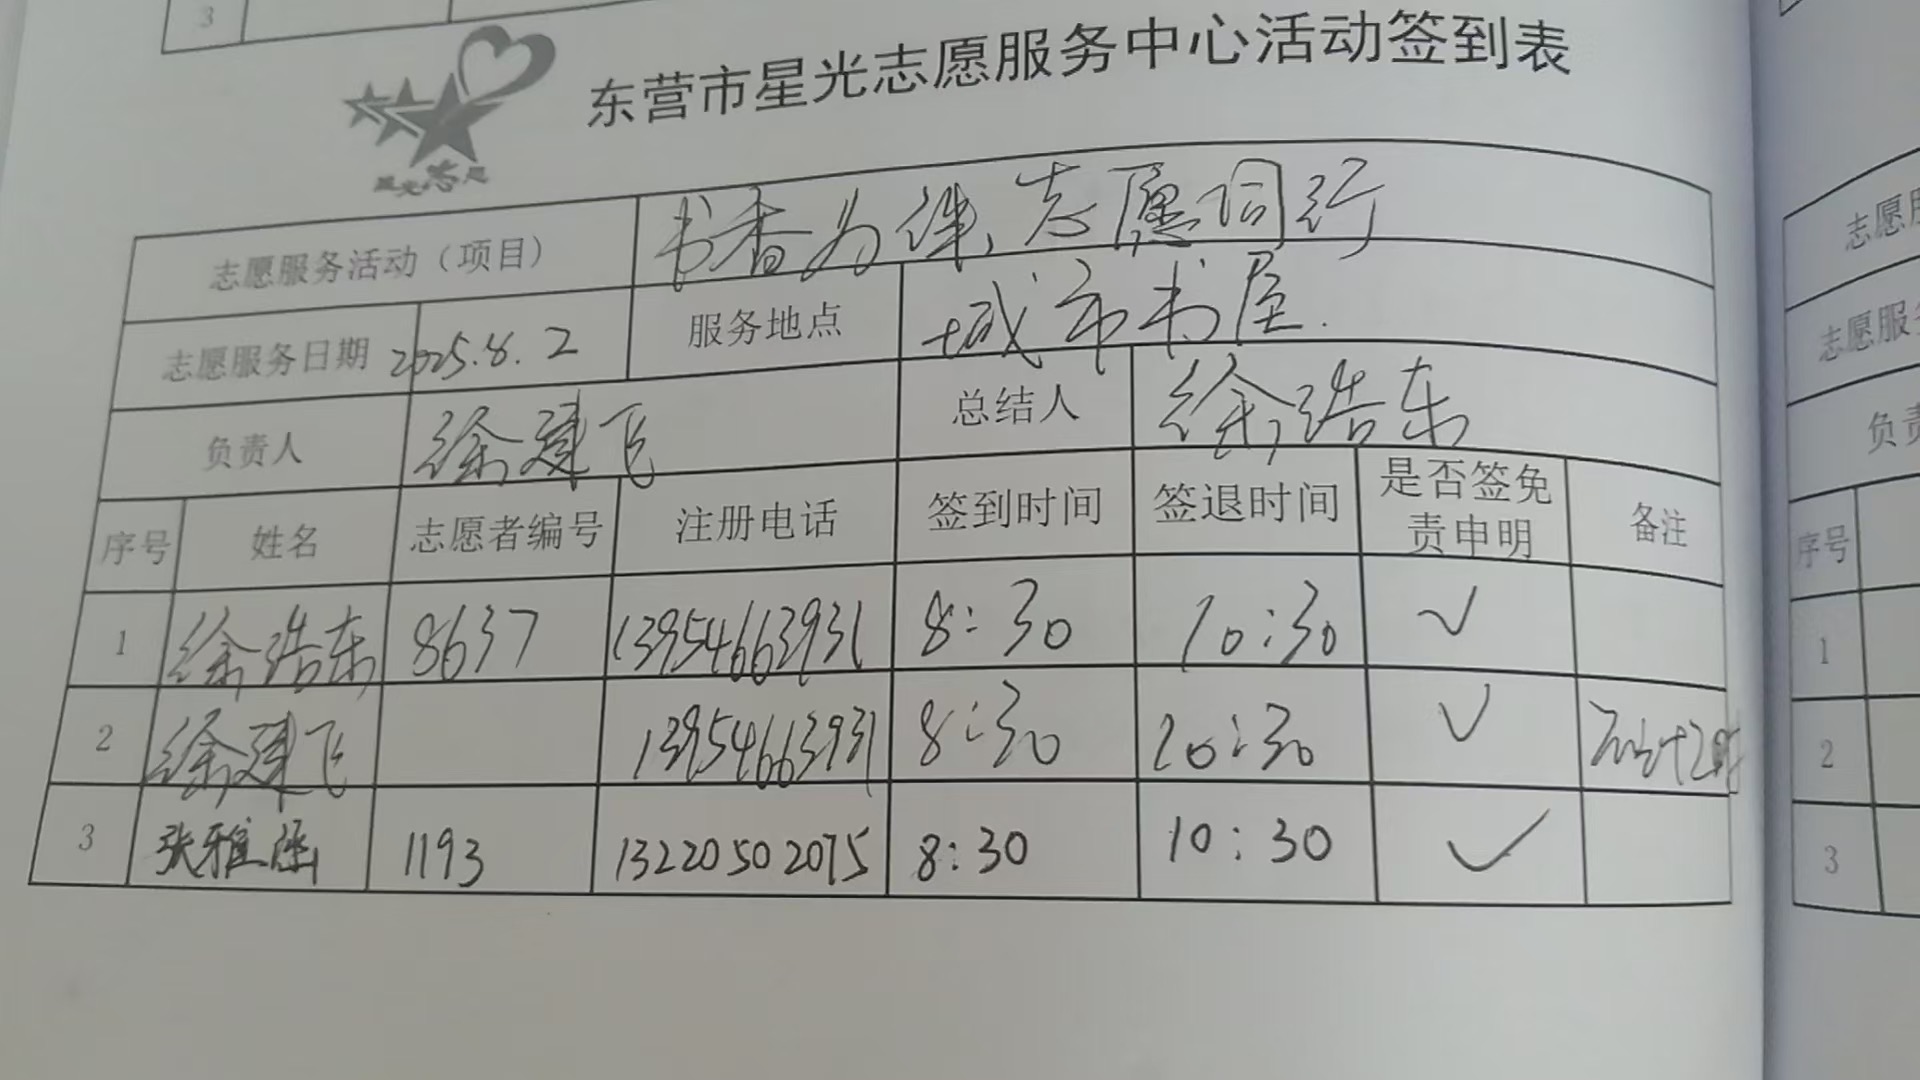 3
东营市星光志愿服务中心活动签到表
星光志愿
志愿服务活动（项目） 书香为伴、志愿同行
志愿服务日期 2025.8.2 服务地点 城市书屋.
负责人 徐建飞 总结人 徐浩东
序号 姓名 志愿者编号 注册电话 签到时间 签退时间 是否签免责申明 备注
1 徐浩东 8637 13954663931 8:30 10:30 ✓
2 徐建飞 13954663931 8:30 10:30 ✓
3 张雅涵 1193 13220502075 8:30 10:30 ✓
志愿
志愿服
负责
序号
1
2
3